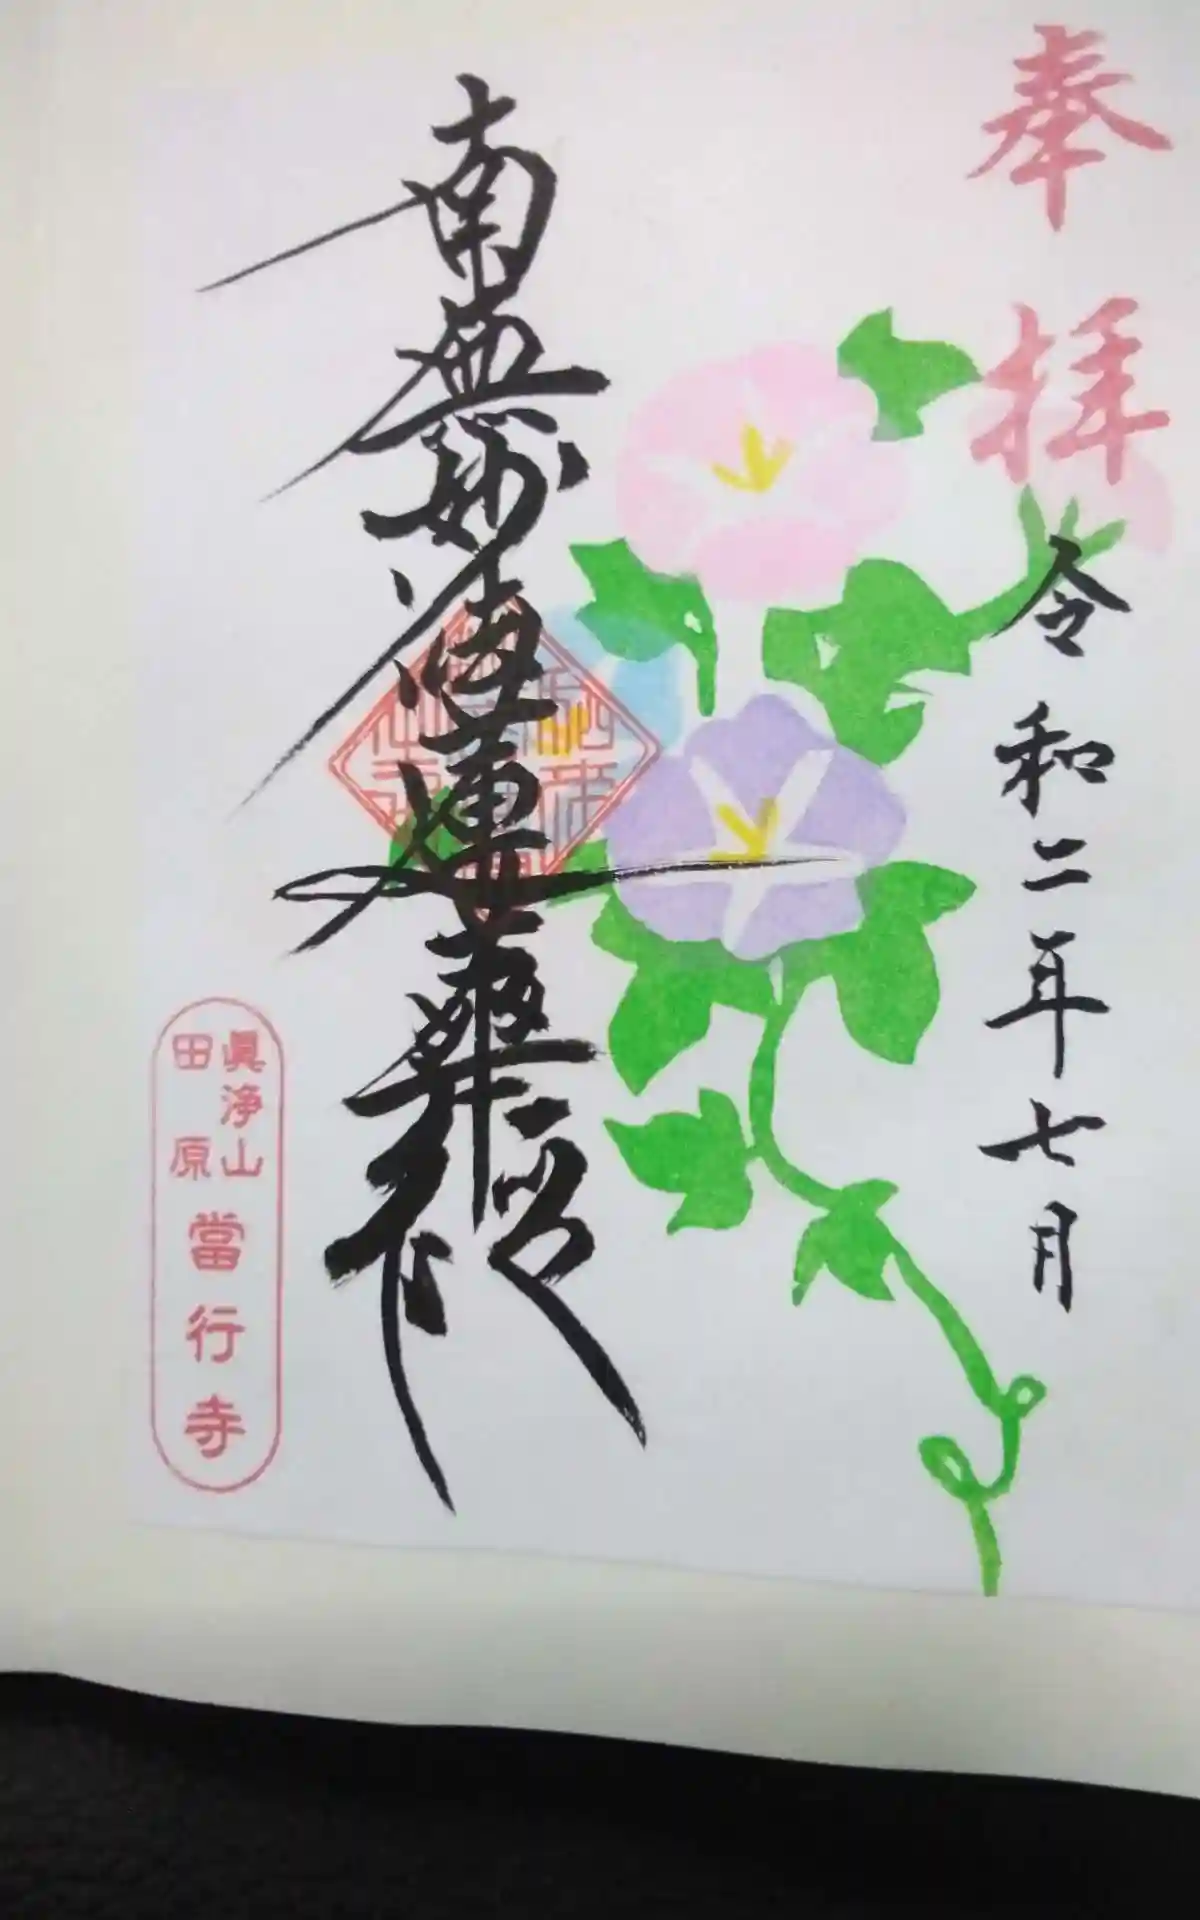 奉拝
令和二年七月
南無妙法蓮華経
眞浄山
田原
當行寺